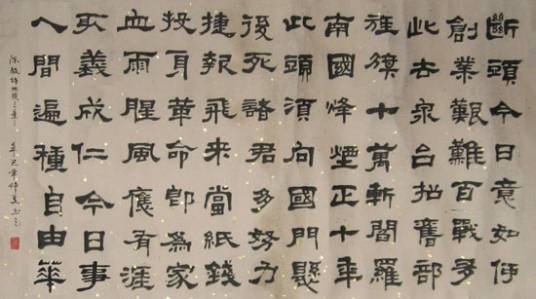 斷頭今日意如何
創業艱難百戰多
此去泉台招舊部
旌旗十萬斬閻羅
南國烽煙正十年
此頭須向國門懸
後死諸君多努力
捷報飛來當紙錢
投身革命即爲家
血雨腥風應有涯
取義成仁今日事
人間遍種自由華
陳毅詩梅嶺三章